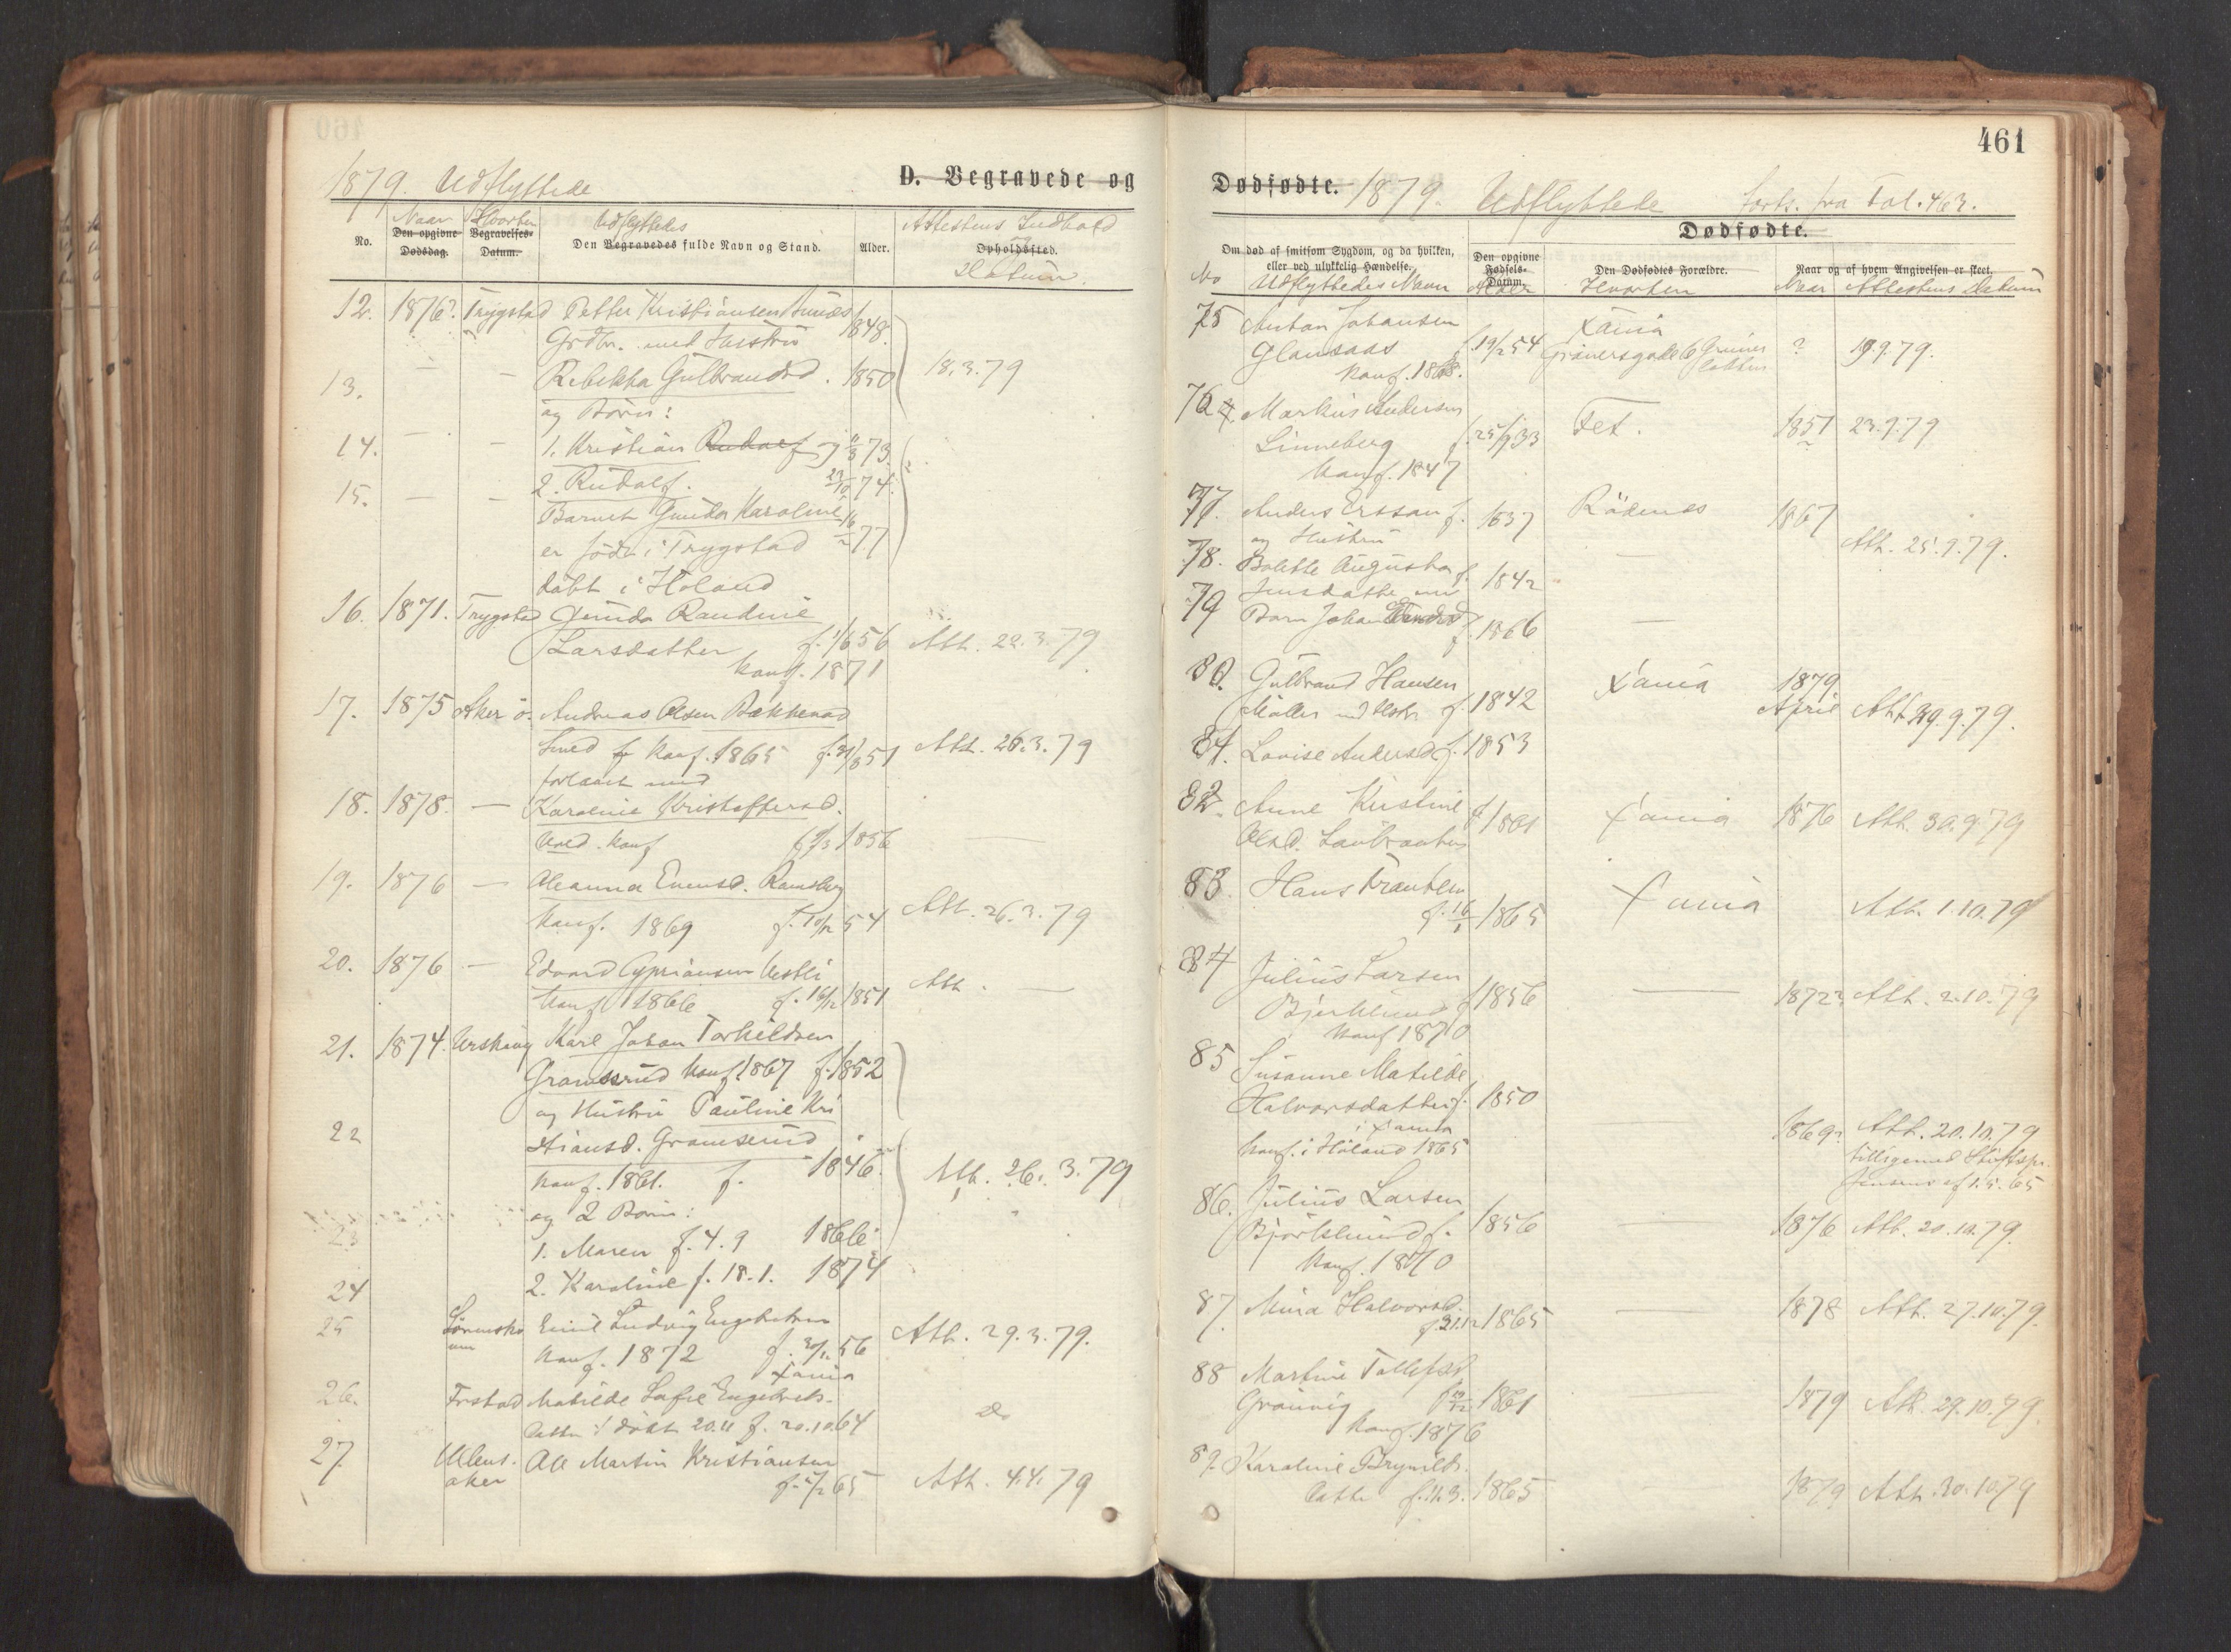 1879. Udflyttede
D. Begravede og
Naar
Hvorhen
Udflyttedes
Attestens Indhold
No.
Den opgivne Dødsdag.
Begravelses-Datum.
Den Begravedes fulde Navn og Stand.
Alder.
og
Opholdssted.
Datum.
12. 1876? Trygstad Petter Kristiansen
Grdbr. med Hustru 1848.
13. — — Rebekka Gulbrandsd. 1850 18.3.79
og Börn:
14. — — 1. Kristian Rudolf 73.
15. — — 2. Rudolf. 74.
Barnet Gunda Karoline
er födt i Trygstad 77
döbt i Höland
16. 1871. Trygstad Gunda Randine
Larsdatter f. 1/6 56 Att. 22.3.79
Konf. 1871
17. 1875 Aker ö. Andreas Olsen Bakkerud
Smed Konf. 1865 f. 51 Att. 26.3.79
forlovet med
18. 1878. — Karoline Kristoffersd.
Konf f. 1856 —
19. 1876 — Oleanna Evensd. Ramsberg
Konf. 1869 f. 54 Att. 26.3.79
20. 1876 — Edvard Cypriansen Vestli
Konf 1866 f. 16/12 1851 Att. —
21. 1874. Urskoug Karl Johan Torkildsen
Gramserud Konf. 1867 f. 1852
og Hustru Pauline Kri
22 stiansd. Gramserud
Konf. 1861. f. 1846. Att. 26.3.79
og 2 Börn:
23 1. Maren f. 4.9 1866
24 2. Karoline f. 18.1. 1874
25 Lörensko Emil Ludvig Engebretsen
Konf. 1872 f. 56 Att. 29.3.79.
Xania
26. Frstad Matilde Sofie Engebrets-
datter döbt 20.11 f. 20.10.64 do
27. Ullens- Ole Martin Kristiansen
aker f. 65 Att. 4.4.79
461
Dødfødte. 1879. Udflyttede forts. fra Fol. 463.
Dødfødte.
Om død af smitsom Sygdom, og da hvilken,
eller ved ulykkelig Hændelse.
Den opgivne
Fødsels-
Datum.
Den Dødfødtes Forældre.
Naar og af hvem Angivelsen er skeet.
No Udflyttedes Navn Alder Hvorhen Naar Attestens Datum
75 Anton Johansen Xania
Glansaas f. 19/2 54 Grünersgade 6 ? 19.9.79.
Konf. 1868.
76 Markus Andersen
Linneberg f. 25/9 33 Fet. 1851 23.9.79
Konf. 1847
77. Anders Ersson f. 1837 Rödenes 1867
og Hustru Att. 25.9.79.
78. Bolette Augusta f. 1842 —
Jensdatter med
79 Barn Johan f. 1866 —
80. Gulbrand Hansen Xania 1879
Möller med Hstr. f. 1842 April Att. 29.9.79.
81. Lovise Andersd. f. 1853
82. Anne Kristine f. 1861 Xania 1876 Att. 30.9.79
Olsd.
83 Hans Frantsen Xania
f. 16/1 1865 Att. 1.10.79
84 Julius Larsen
Bjerklund f. 1856 — 1872? Att. 2.10.79
Konf 1870
85 Susanne Matilde
Halvorsdatter f. 1850
i Xania
Konf. i Höland 1865 — 1869? Att. 20.10.79
86. Julius Larsen
Björklund f. 1856 — 1876 Att. 20.10.79.
Konf. 1870
87. Mina Halvorsd.
f. 21.12 1865 — 1878 Att. 27.10.79.
88 Martine Tollefsd.
Grönvig f. 1861 — 1879 Att. 29.10.79.
Konf. 1876
89. Karoline Brynilds-
datter f. 11.3. 1865 — 1879 Att. 30.10.79